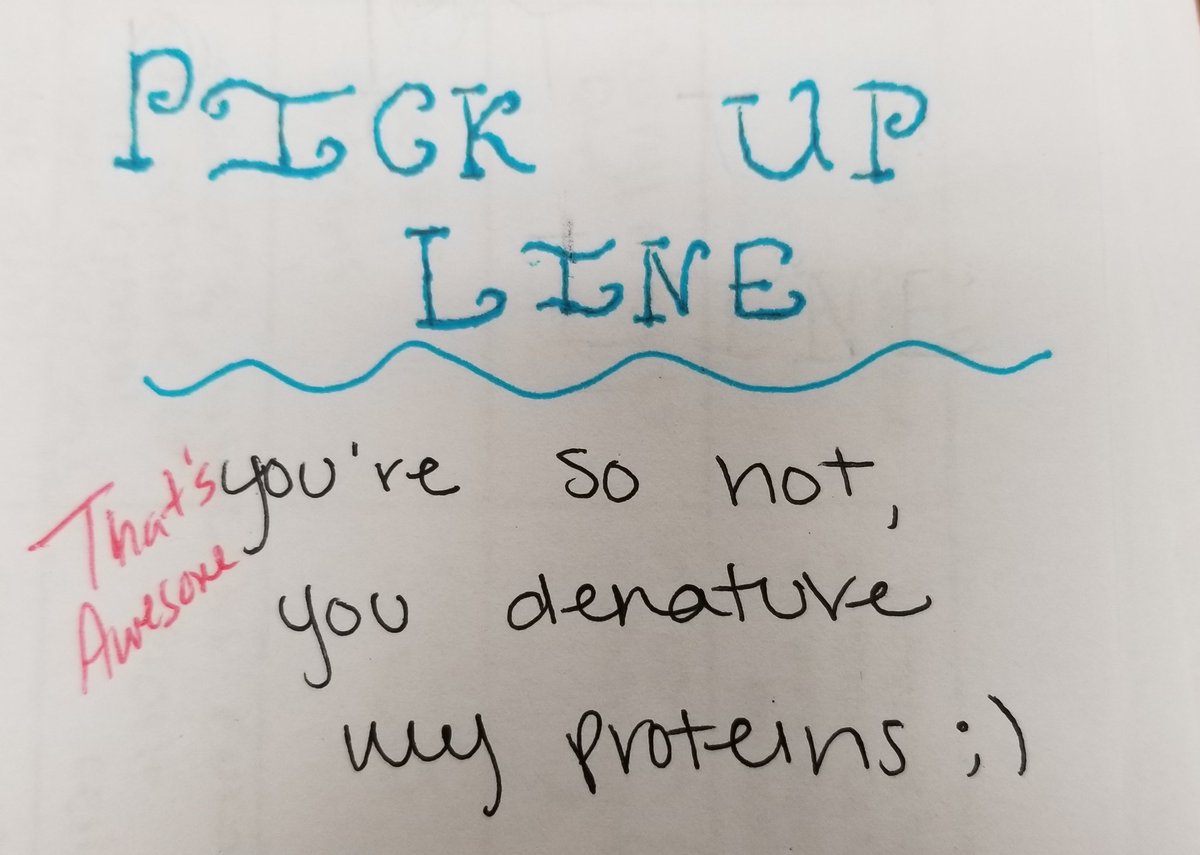 PICK UP
LINE
That's
Awesome
you're so hot,
you denature
my proteins ;)